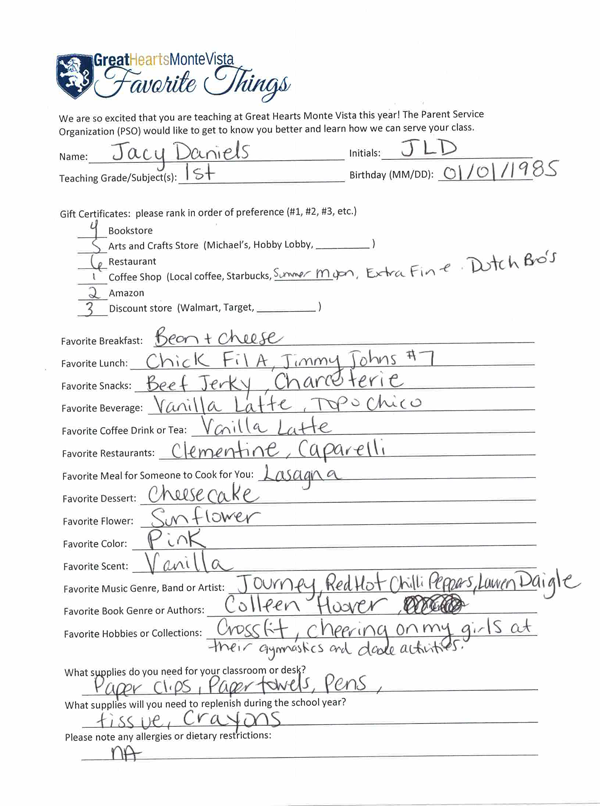 GreatHeartsMonteVista
Favorite Things
We are so excited that you are teaching at Great Hearts Monte Vista this year! The Parent Service
Organization (PSO) would like to get to know you better and learn how we can serve your class.
Name: Jacy Daniels Initials: JLD
Teaching Grade/Subject(s): 1st Birthday (MM/DD): 01/01/1985
Gift Certificates: please rank in order of preference (#1, #2, #3, etc.)
4 Bookstore
5 Arts and Crafts Store (Michael's, Hobby Lobby, ________ )
6 Restaurant
1 Coffee Shop (Local coffee, Starbucks, Summer Moon, Extra Fine. Dutch Bro's
2 Amazon
3 Discount store (Walmart, Target, ________ )
Favorite Breakfast: Bean + cheese
Favorite Lunch: Chick Fil A, Jimmy Johns #7
Favorite Snacks: Beef Jerky, Charcuterie
Favorite Beverage: Vanilla Latte, Topo Chico
Favorite Coffee Drink or Tea: Vanilla Latte
Favorite Restaurants: Clementine, Caparelli
Favorite Meal for Someone to Cook for You: Lasagna
Favorite Dessert: Cheesecake
Favorite Flower: Sunflower
Favorite Color: Pink
Favorite Scent: Vanilla
Favorite Music Genre, Band or Artist: Journey, Red Hot Chilli Peppers, Lauren Daigle
Favorite Book Genre or Authors: Colleen Hoover
Favorite Hobbies or Collections: Crossfit, cheering on my girls at
their gymnastics and dance activities.
What supplies do you need for your classroom or desk?
Paper clips, Paper towels, Pens,
What supplies will you need to replenish during the school year?
tissue, Crayons
Please note any allergies or dietary restrictions:
NA